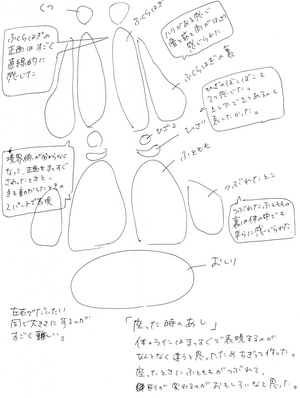 くつ
ふくらはぎの
正面はすごく
直線的に
感じた
ふくらはぎ
ハリがある感じで
骨と筋肉がはっきり
感じられた
ふくらはぎの裏
ひざのぽこぽこも
2つ感じた。
上と下で2つあるのも
楽しかった。
ひざ上
ひざ下
境界線が分からなく
なって、正面をまっすぐ
手を動かしたときの
2パートで表現
ふともも
つぶれたところ
つぶれたふとももの
裏は体の中でも
平らに感じられた
おしり
左右でだいたい
同じ大きさにするのが
すごく難しい。
「座った時のあし」
体のラインはまっすぐで表現するのが
なんとなく違うと思ったためちぎって作った。
座ったときにふとももがつぶれて、
形が変わるのがおもしろいなと思った。